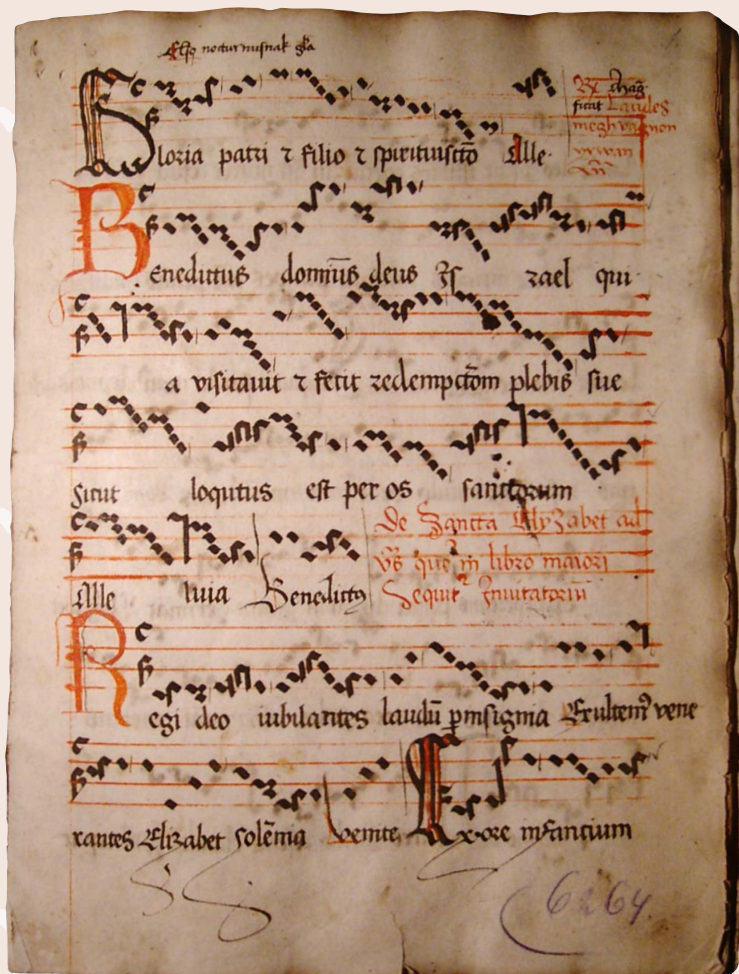 Elsę nocturnusnak gła
Gloria patri ⁊ filio ⁊ spirituisctō Alle
Rx Mag
ficat Laudes
megh vagnon
vr̄wan
Benedictus domin̄us deus Is rael qui
a visitauit ⁊ fecit redemptōm plebis sue
Sicut loqutus est per os sanctorum
Alle luia Benedictꝯ
de Sancta Elyzabet ad
vs̄ que in libro maiori
Sequit᷑ Inuitatoriū
Regi deo iubilantes laudū p̄insignia Exultem᷒ vene
rantes Elizabet solēnia venite Ex ore infantium
6264